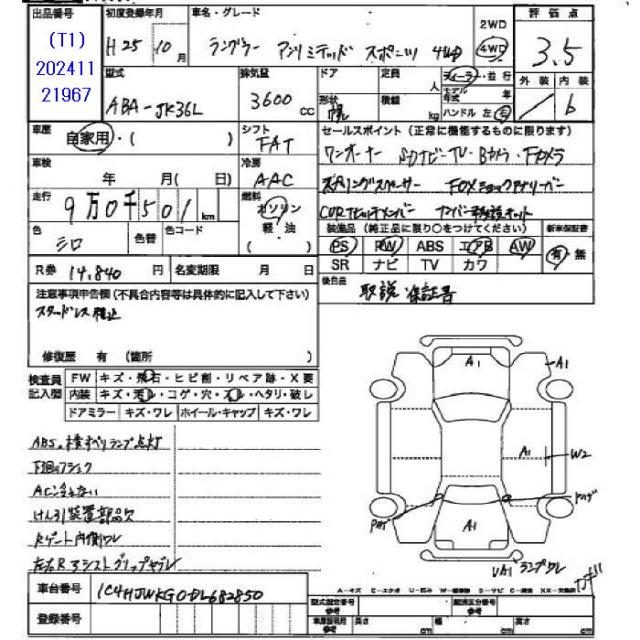 出品番号 初度登録年月 車名・グレード 2WD 評価点
(T1) H25 10月 ラングラー アンリミテッド スポーツ 4WD 4WD 3.5
202411
21967
型式 排気量 ドア 定員 人 ディーラー・並行 外装 内装
ABA-JK36L 3600 CC 形状 幌 積載 kg モデル年式 年 6
ハンドル 左 右
車歴 自家用・( ) シフト FAT セールスポイント(正常に機能するものに限ります)
ワンオーナー SDナビ・TV・Bカメラ・Fカメラ
車検 年 月( 日) 冷房 AAC
スプリングスペーサー FOXショックアブソーバー
走行 9万0千501km 燃料 ガソリン 軽・油 ( )
色 シロ 色替 色コード
装備品(純正品に限り○をつけてください) 新車保証書
PS PW ABS エアB AW 有・無
SR ナビ TV カワ
R券 14,840円 名変期限 月 日
後日品 取説 保証書
注意事項申告欄(不具合内容等は具体的に記入して下さい)
スタッドレス積込
修復歴 有 (箇所 )
検査員記入欄 FW キズ・飛石・ヒビ割・リペア跡・X要
内装 キズ・汚レ・コゲ・穴・スレ・ヘタリ・破レ
ドアミラー キズ・ワレ ホイール・キャップ キズ・ワレ
A1 A1
A1 W2
A1
UA1 ランプワレ
ABS、横すべりランプ点灯
けん引装置部品欠
Rゲート内側ワレ
A=キズ E=エクボ U=凹み
車台番号 1C4HJWKG0DL682850
型式指定番号 類別区分番号
登録番号 長さ cm 幅 cm 高さ cm